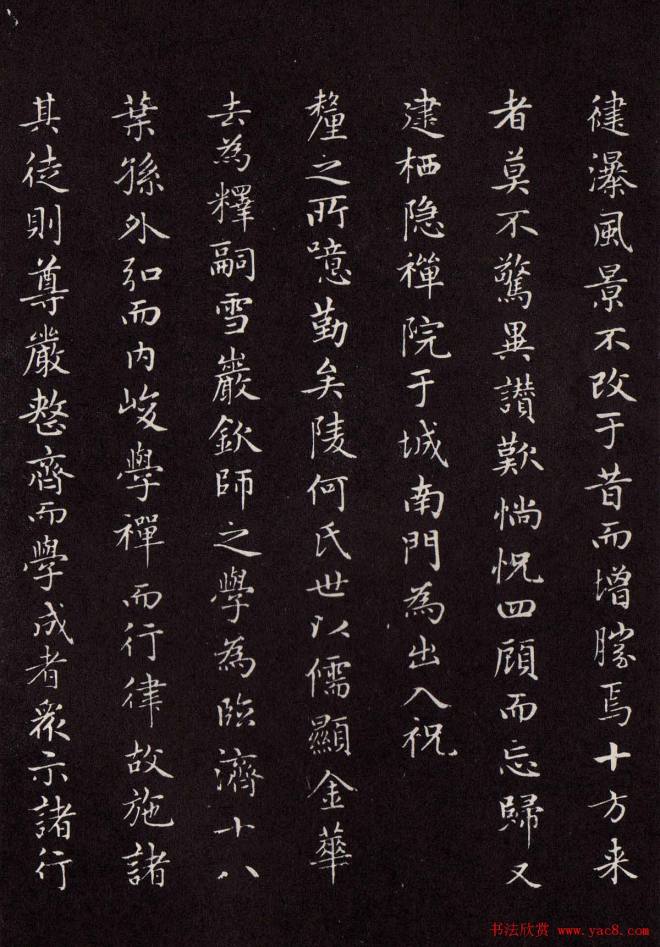 健瀑風景不改于昔而增勝焉十方来
者莫不驚異讃歎惝怳四顧而忘歸又
建栖隐禪院于城南門為出入祝
釐之所噫勤矣陵何氏世以儒顯金華
去為釋嗣雪巖欽師之學為臨濟十八
葉孫外弘而内峻學禪而行律故施諸
其徒則尊嚴整齊而學成者衆示諸行
书法欣赏 www.yac8.com